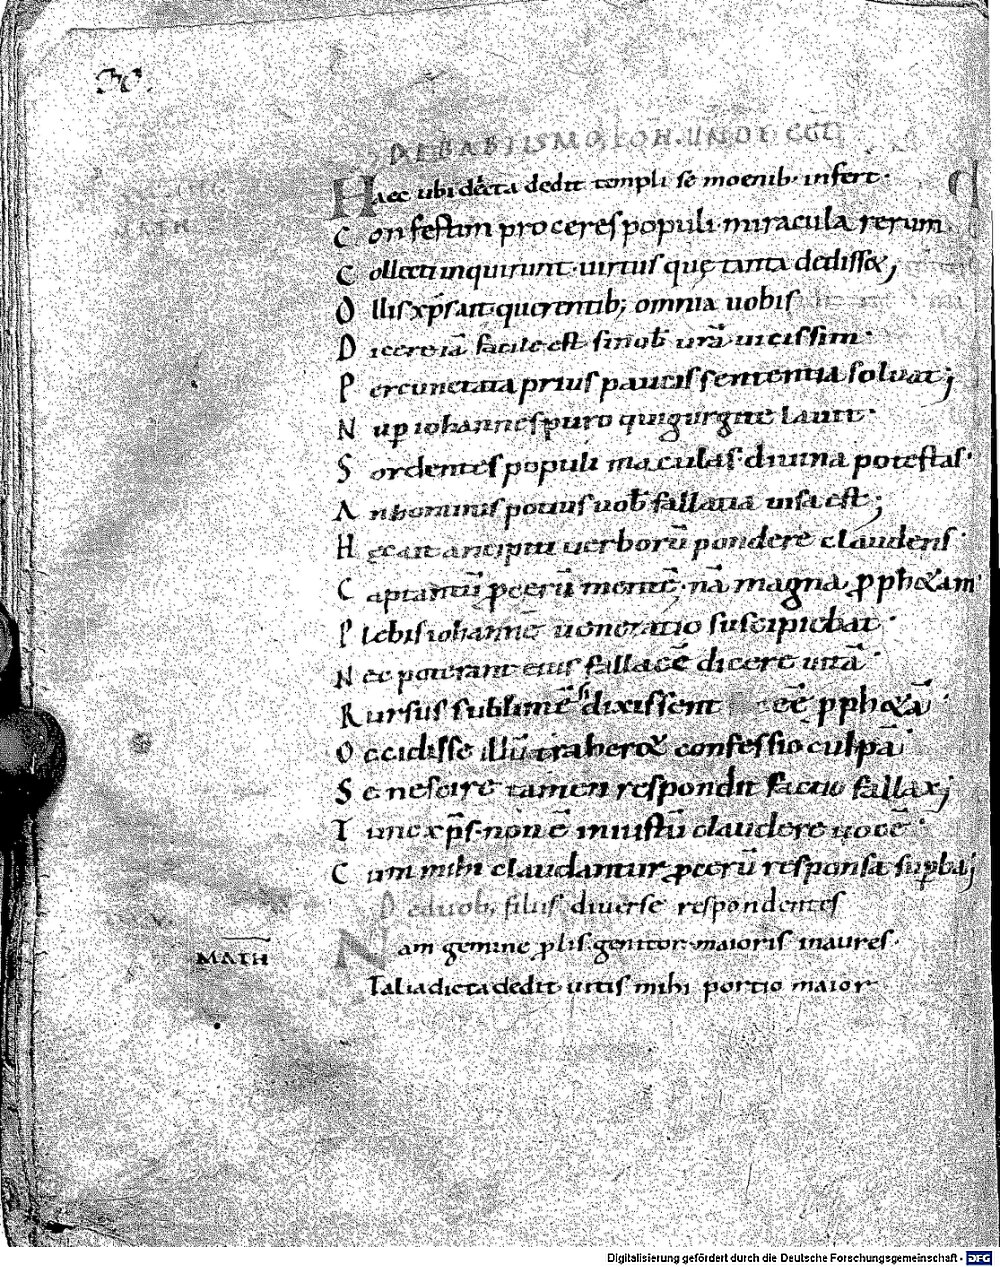 DE BABTISMO IOH. UNDE ECCT
Haec ubi dicta dedit templi se moenib· infert·
Confestim proceres populi miracula rerum
Collecti inquirunt· uirtus quę tanta dedisset;
Ollis xp̄s ait querentib; omnia uobis
Dicere iā facile est si nob̄ urā uicissim·
Percunctata prius paucis sententia soluat;
Nup iohannes puro qui gurgite lauit·
Sordentes populi maculas· diuina potestas·
An hominis potius uob̄ fallacia uisa est;
Hęc ait ancipiti uerborū pondere claudens·
Captantū pcerū mentē· nā magna pphetam·
Plebis iohannē ueneratio suscipiebat·
Nec poterant eius fallacē dicere uitā·
Rursus sublimē si dixissent eē pphetā·
Occidisse illū traheret confessio culpā·
Se nescire tamen respondit factio fallax;
Tunc xp̄s· non ē iniustū claudere uocē·
Cum mihi claudantur pcerū responsa supba;
De duob; filiis diuerse respondentes
MATH
Nam gemine plis genitor maioris inaures·
Talia dicta dedit uitis mihi portio maior·
Digitalisierung gefördert durch die Deutsche Forschungsgemeinschaft - DFG